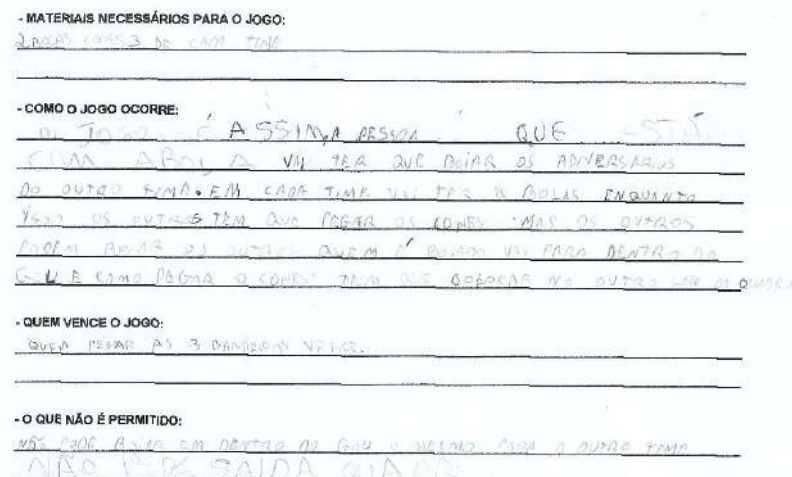 - MATERIAIS NECESSÁRIOS PARA O JOGO:
2 BOLAS CONES 3 DE CADA TIME
- COMO O JOGO OCORRE:
O JOGO É ASSIM, A PESSOA QUE ESTÁ
COM A BOLA VAI TER QUE BOIAR OS ADVERSARIOS
DO OUTRO TIME. EM CADA TIME VAI TER 2 BOLAS ENQUANTO
ISSO OS OUTROS TEM QUE PEGAR OS CONES MAS OS OUTROS
PODEM BOIAR OS OUTROS QUEM É VAI PARA DENTRO DO
GOU E O CONES TEM QUE COLOCAR NO OUTRO DA
- QUEM VENCE O JOGO:
QUEM PEGAR AS 3 VENCE.
- O QUE NÃO É PERMITIDO:
NÃO PODE BOIAR EM DENTRO DO GOU O MESMO PARA O OUTRO TIME
NÃO SAIDA